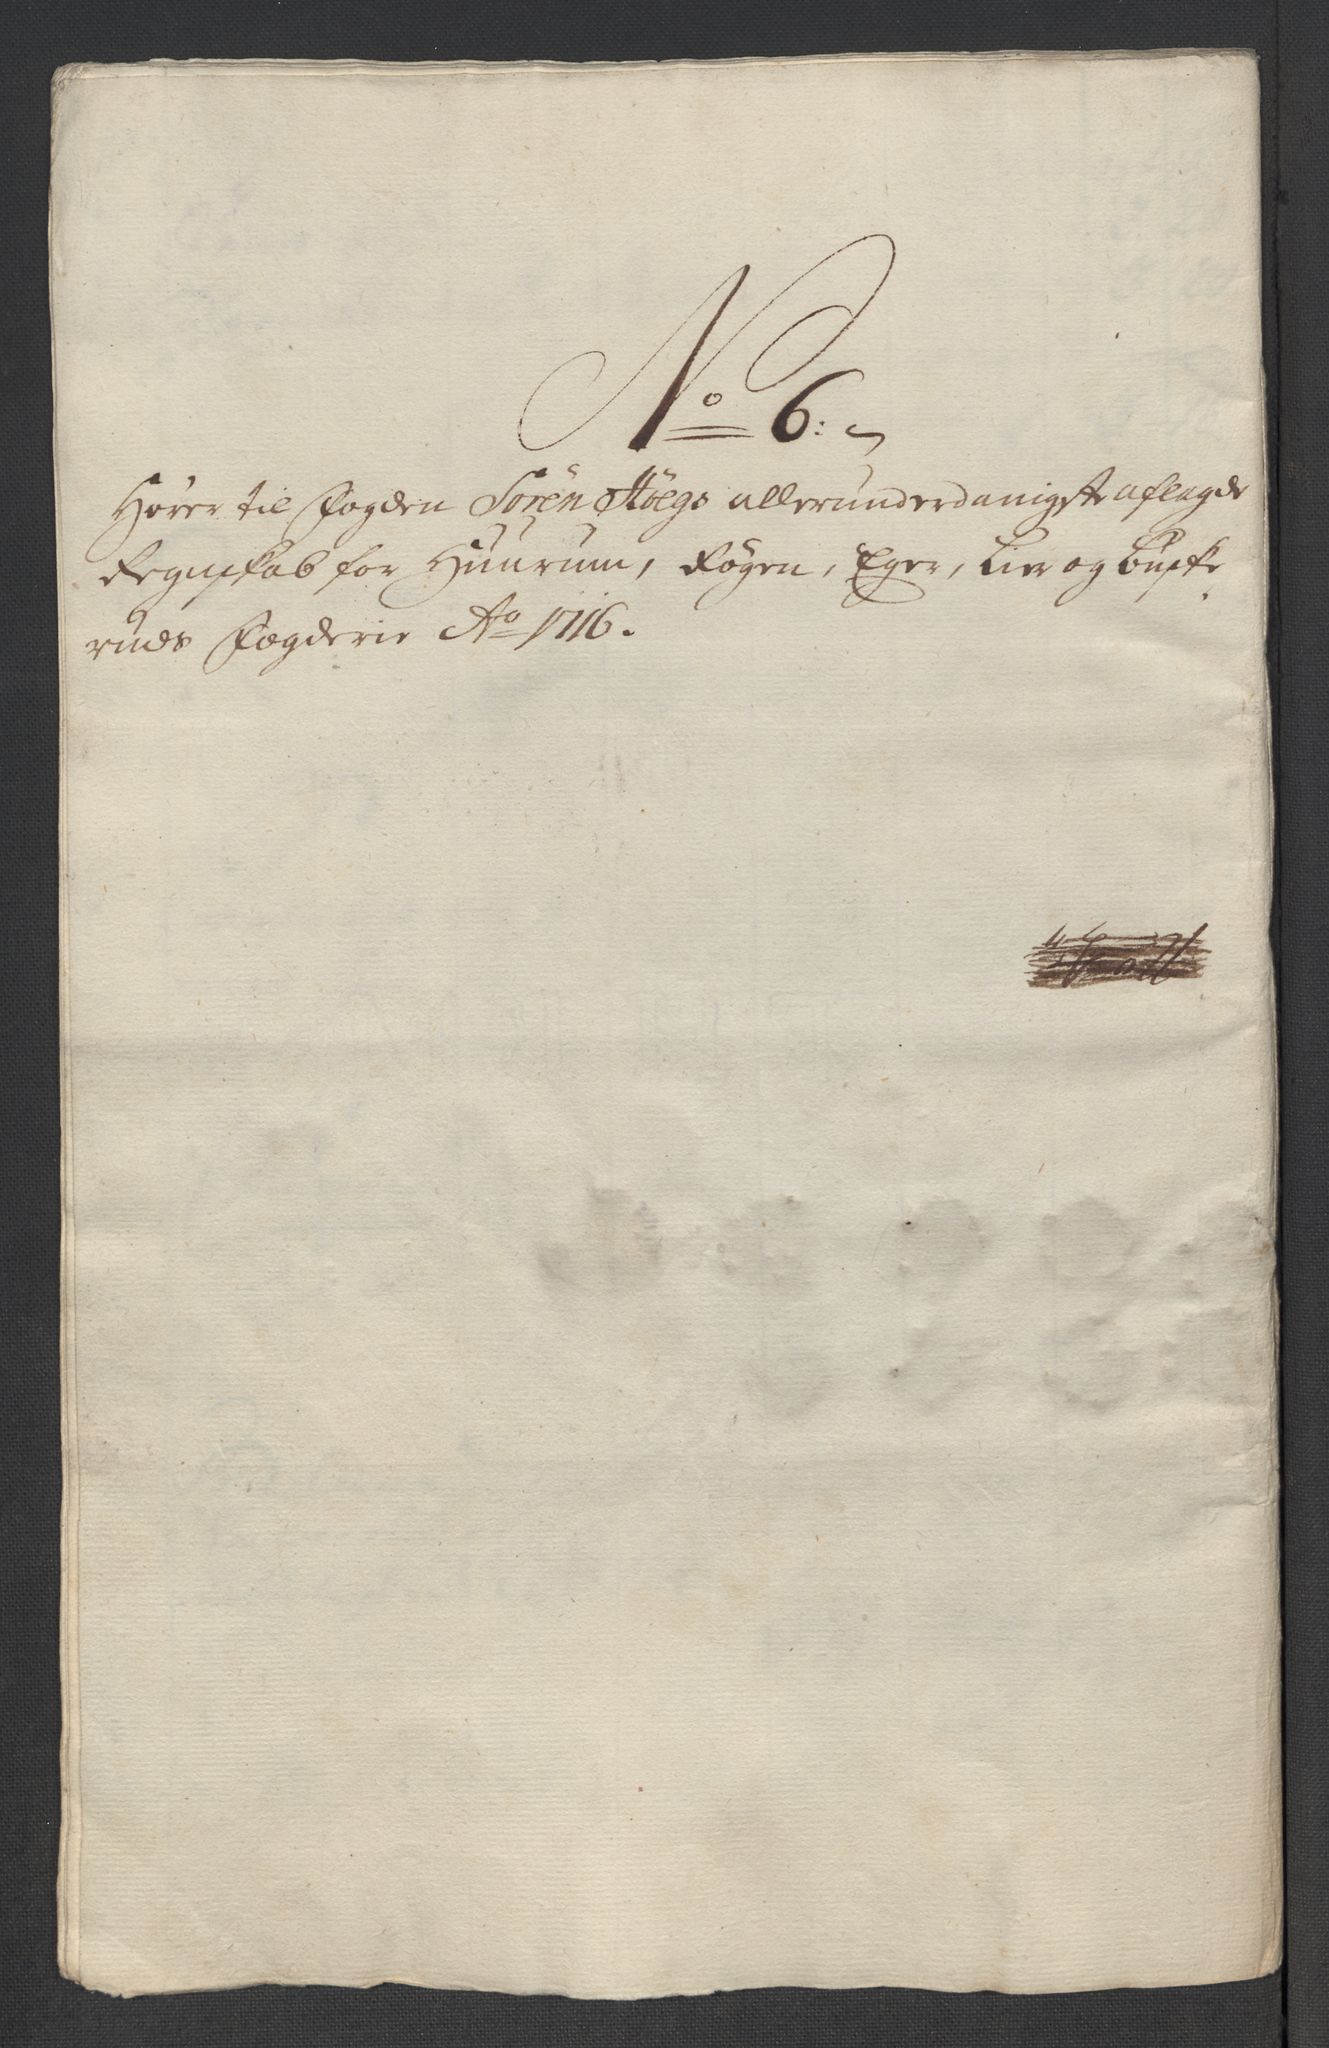 No 6:
Hörer til Fogden Sorën Höegs allerunderdanigste aflagde
Regnskab for Huurum, Röger, Eger, Lier og Buske
ruds Fogderie Ao 1716.